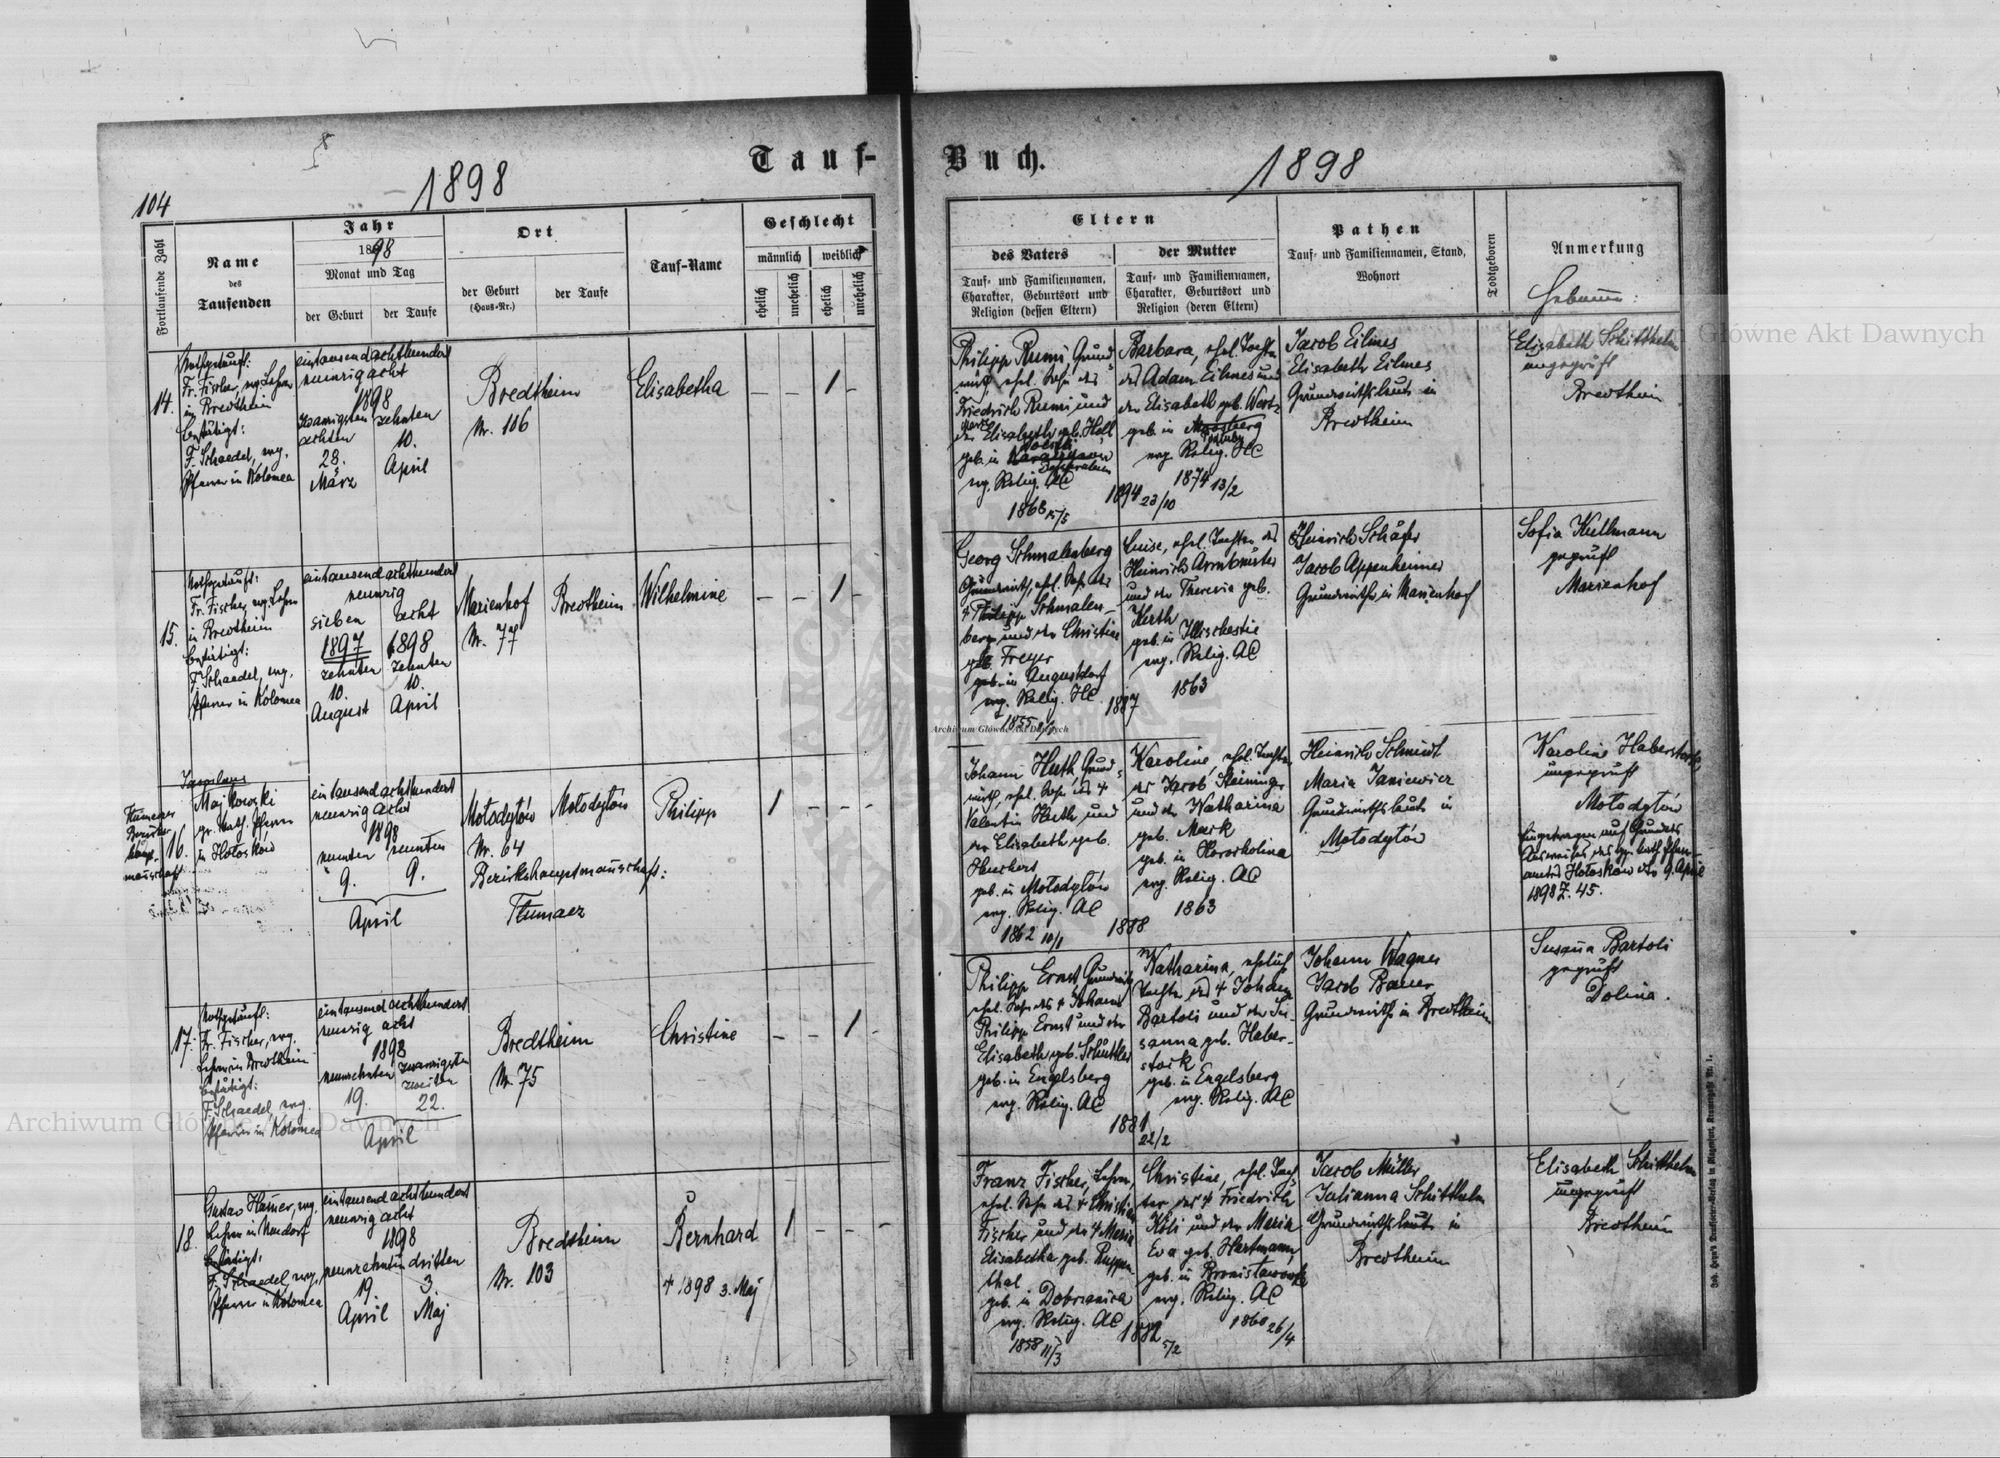 Tauf-
1898
104
Fortlaufende Zahl
Name
des
Taufenden
Jahr
1898
Monat und Tag
der Geburt
der Taufe
Ort
der Geburt
(Haus-Nr.)
der Taufe
Tauf-Name
Geschlecht
männlich
weiblich
ehelich
unehelich
ehelich
unehelich
14.
Nothgetauft:
Fr. Fischer, evg. Lehrer
in Bredtheim
bestätigt:
F. Schaedel, evg.
Pfarrer in Kolomea
eintausendachthundert
neunzig acht
1898
zwanzigsten zehnten
achten 10.
28. April
März
Bredtheim
Nr. 106
Elisabetha
– – 1 –
15.
Nothgetauft:
Fr. Fischer, evg. Lehrer
in Bredtheim
bestätigt:
F. Schaedel, evg.
Pfarrer in Kolomea
eintausend achthundert
neunzig
sieben acht
1897 1898
zehnten zehnten
10. 10.
August April
Marienhof
Nr. 77
Bredtheim
Wilhelmine
– – 1 –
16.
Majkowski
gr. kath. Pfarrer
in Hołosków
eintausend achthundert
neunzig acht
1898
neunten neunten
9. 9.
April
Mołodyłów
Nr. 64
Bezirkshauptmannschaft:
Tłumacz
Mołodyłów
Philipp
1 – – –
17.
Nothgetauft:
Fr. Fischer, evg.
Lehrer in Bredtheim
bestätigt:
F. Schaedel, evg.
Pfarrer in Kolomea
eintausend achthundert
neunzig acht
1898
neunzehnten zwanzigsten
zweiten
19. 22.
April
Bredtheim
Nr. 75
Christine
– – 1 –
18.
Gustav Hauer, evg.
Lehrer in Neudorf
bestätigt:
F. Schaedel, evg.
Pfarrer in Kolomea
eintausend achthundert
neunzig acht
1898
neunzehnten dritten
19. 3.
April Maj
Bredtheim
Nr. 103
Bernhard
† 1898 3. Maj
1 – – –
Buch.
1898
Eltern
des Vaters
Tauf- und Familiennamen,
Charakter, Geburtsort und
Religion (dessen Eltern)
der Mutter
Tauf- und Familiennamen,
Charakter, Geburtsort und
Religion (deren Eltern)
Pathen
Tauf- und Familiennamen, Stand,
Wohnort
Todtgeboren
Anmerkung
Hebamme:
Philipp Rumi, Grund-
wirth, ehel. Sohn des
Friedrich Rumi und
der Elisabeth geb. Höll
geb. in
evg. Relig. AC
1868 15/5
Barbara, ehel. Tochter
des Adam Eilmes und
der Elisabeth geb. Wertz
geb. in
evg. Relig. HC
1894 23/10
1874 13/2
Jacob Eilmes
Elisabeth Eilmes
Grundwirthsleute in
Bredtheim
Elisabeth Schitthelm
ungeprüft
Bredtheim
Georg Schmalenberg
Grundwirth, ehel. Sohn des
† Philipp Schmalen-
berg und der Christine
geb. Freyer
geb. in Augustdorf
evg. Relig. HC
1855
1887
Luise, ehel. Tochter des
Heinrich Armbrüster
und der Theresia geb.
Huth
geb. in Illischestie
evg. Relig. AC
1863
Heinrich Schäfer
Jacob Appenheimer
Grundwirthe in Marienhof
Sofia Kullmann
geprüft
Marienhof
Johann Huth, Grund-
wirth, ehel. Sohn des †
Valentin Huth und
der Elisabeth geb.
geb. in Mołodyłów
evg. Relig. AC
1862 10/1
1888
Karoline, ehel. Tochter
des Jacob Steininger
und der Katharina
geb. Mark
geb. in Horocholina
evg. Relig. AC
1863
Heinrich Schmidt
Maria Janiewicz
Grundwirthsleute in
Mołodyłów
Karoline Haberstock
ungeprüft
Mołodyłów
Eingetragen auf Grund des
Ausweises des gr. kath. Pfarr-
amtes Hołosków dto 9. April
1898 Z. 45.
Philipp Ernst, Grundwirth
ehel. Sohn des † Johann
Philipp Ernst und der
Elisabeth geb. Schüttler
geb. in Engelsberg
evg. Relig. AC
1881
22/2
Katharina, ehelich
Tochter des † Johann
Bartoli und der Su-
sanna geb. Haber-
stock
geb. in Engelsberg
evg. Relig. AC
Johann Wagner
Jacob Bauer
Grundwirthe in Bredtheim
Susana Bartoli
geprüft
Dolina.
Franz Fischer, Lehrer,
ehel. Sohn des † Christian
Fischer und der † Maria
Elisabetha geb. Ruppen-
thal
geb. in Dobrzanica
evg. Relig. AC
1858 11/3
1882 5/2
Christine, ehel. Toch-
ter des † Friedrich
Köli und der Maria
Eva geb. Hartmann
geb. in Bronisławówka
evg. Relig. AC
1860 26/4
Jacob Müller
Julianna Schitthelm
Grundwirthsleute in
Bredtheim
Elisabeth Schitthelm
ungeprüft
Bredtheim
Archiwum Główne Akt Dawnych
Archiwum Główne Akt Dawnych
Archiwum Główne Akt Dawnych